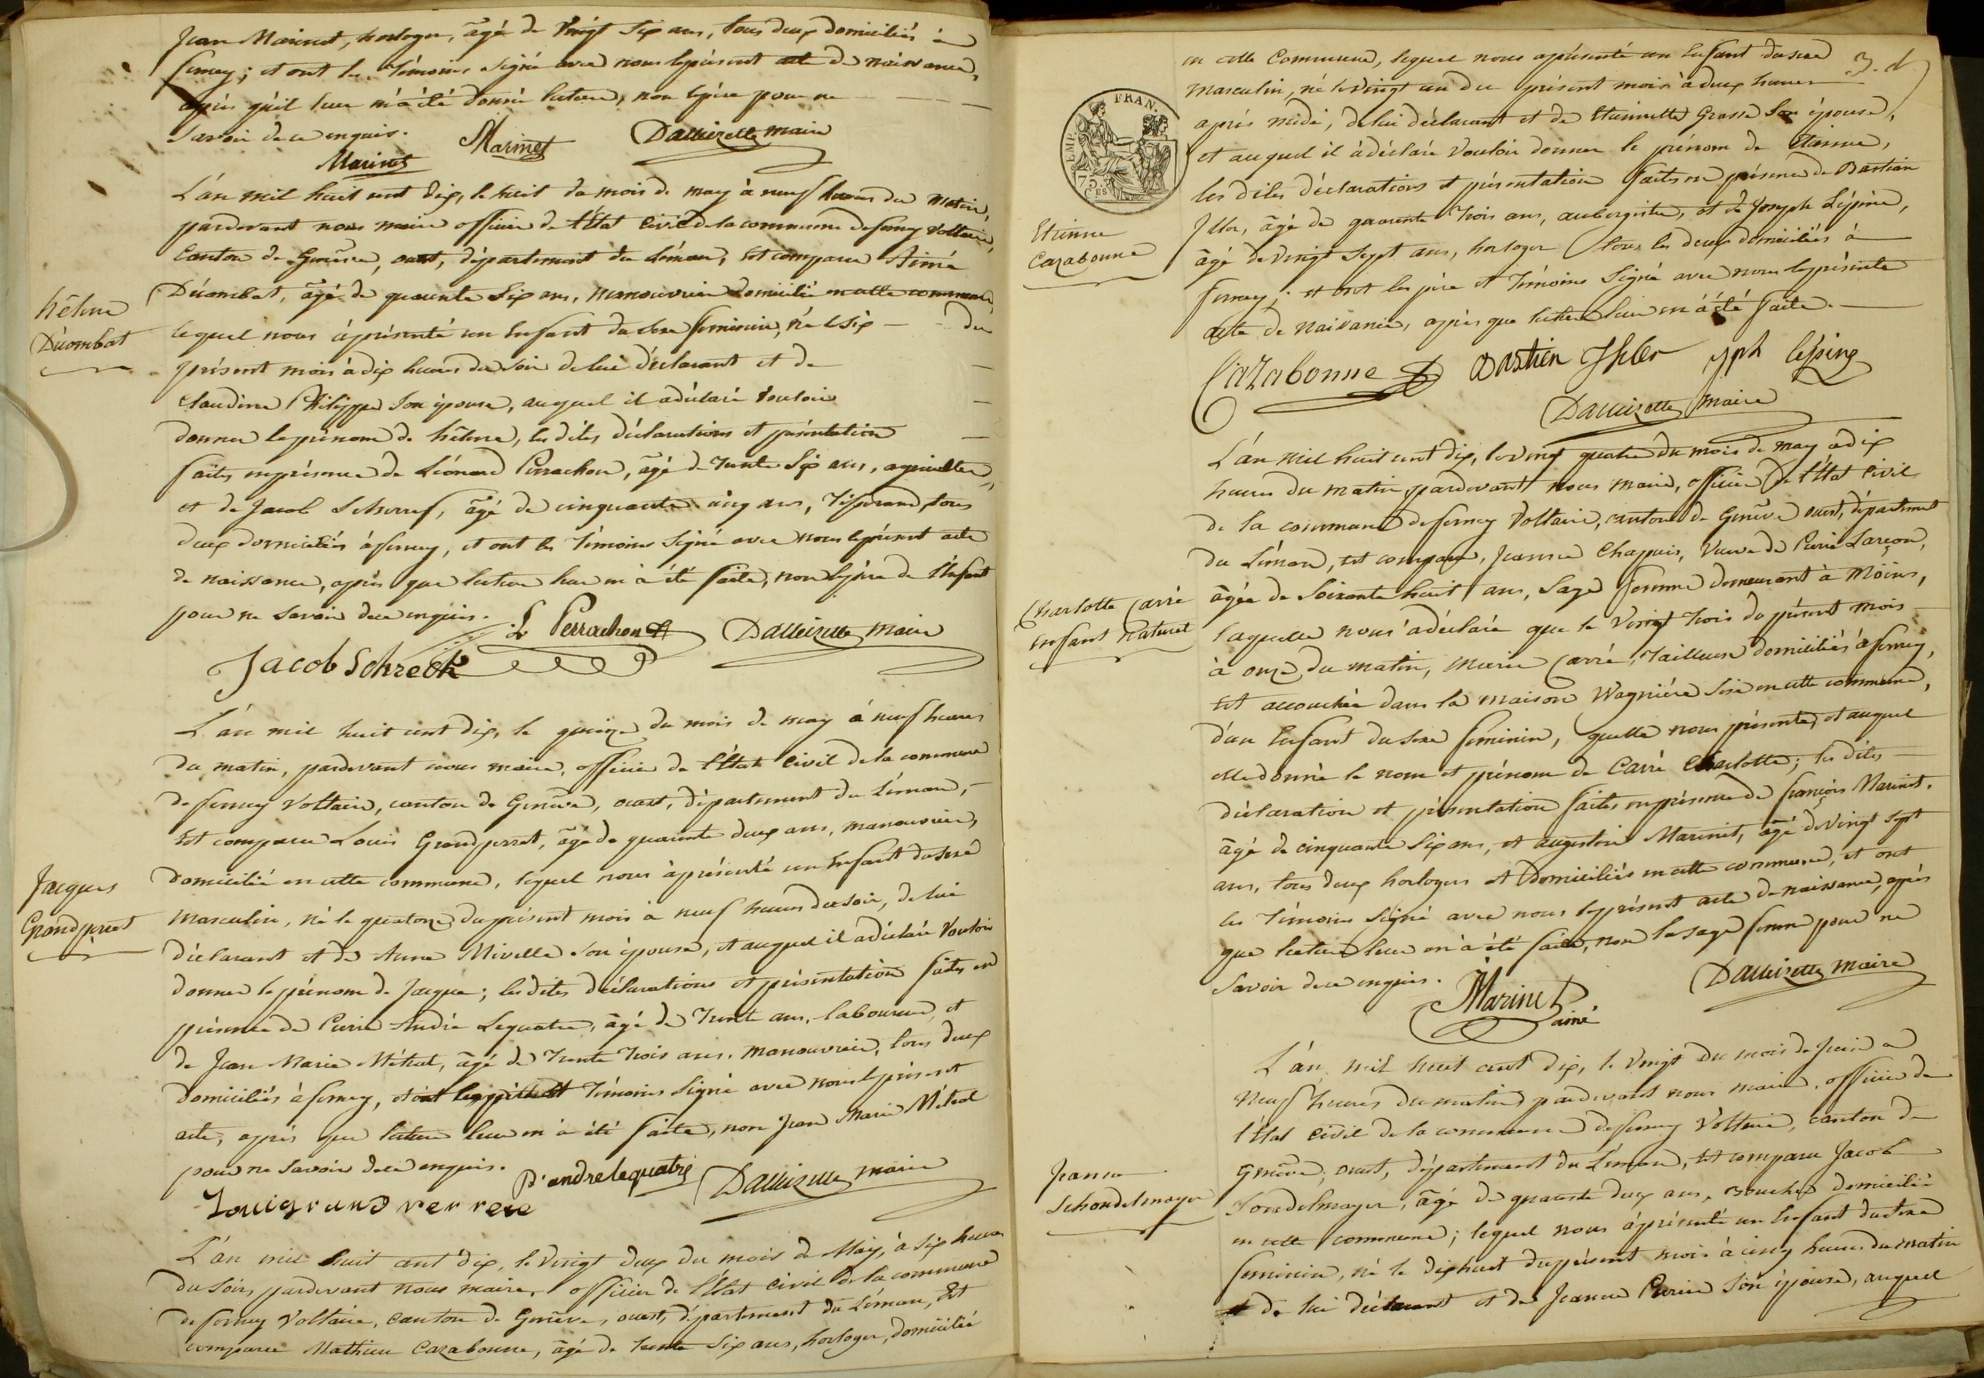 Jean Marinet, horloger, âgé de Vingt Six ans, tous deux domiciliés à
ferney; et ont les témoins signé avec nous le présent acte de naissance,
après qu'il leur en à été donné lecture, non le père pour ne
savoir de ce enquis.
Marinet Marinet Dallizette maire
L'an mil huit cent dix, le huit du mois de may à neuf heures du matin,
pardevant nous maire officier de l'État Civil de la commune de ferney Voltaire,
Canton de Genève, ouest, département du Léman, Est comparu Aimé
Décombat, âgé de quarante Six ans, manouvrier domicilié en cette commune,
lequel nous à présenté un Enfant du sexe feminin, né le Six du
présent mois à dix heures du soir de lui déclarant et de
Claudine Philippe son épouse, auquel il a déclaré vouloir
donner le prénom de hélène, les dites déclarations et présentation
faites en présence de Léonard Perrachon, âgé de trente Six ans, agriculteur,
et de Jacob Schreck, âgé de cinquante cinq ans, Tisserand tous
deux domiciliés à ferney, et ont les Témoins Signé avec nous le présent acte
de naissance, après que lecture leur en à été faite, non le père de l'Enfant
pour ne savoir de ce enquis.
L Perrachon Dallizette maire
Jacob Schreck
hélène
Décombat
L'an mil huit cent dix, le quinze du mois de may à neuf heures
du matin, pardevant nous maire, officier de l'État Civil de la commune
de ferney Voltaire, canton de Genève, ouest, département du Léman,
Est comparu Louis Grandperret, âgé de quarante deux ans, manouvrier,
domicilié en cette commune, lequel nous à présenté un Enfant du sexe
masculin, né le quatorze du présent mois à neuf heures du soir, de lui
déclarant et de Anne Mivelle son épouse, et auquel il a déclaré Vouloir
donner le prénom de Jacques; les dites déclarations et présentation faites en
présence de Pierre André Lequatre, âgé de Trente ans, laboureur, et
de Jean Marie Métral, âgé de trente trois ans, manouvrier, tous deux
domiciliés à ferney, et ont le père et Témoins Signé avec nous le présent
acte, après que lecture leur en à été faite, non Jean Marie Métral
pour ne savoir de ce enquis. P. andrelequatre Dallizette maire
Louigrandperrere
Jacques
Grandperret
L'an mil huit cent dix, le Vingt deux du mois de May, à Six heures
du Soir, pardevant nous maire, officier de l'État Civil de la commune
de ferney Voltaire, canton de Genève, ouest, département du Léman, Est
comparu Mathieu Cazabonne, âgé de trente Six ans, horloger, domicilié
3. d
en cette Commune, lequel nous à présenté un Enfant du sexe
masculin, né le vingt un du présent mois à deux heures
après midi, de lui déclarant et de Etiennette Grosse Son épouse,
et auquel il à déclaré Vouloir donner le prénom de Etienne,
les dites déclarations et présentation faites en présence de Bastian
Isler, âgé de quarante Trois ans, aubergiste, et de Joseph Lépine,
âgé de Vingt Sept ans, horloger tous les deux domiciliés à
ferney; et ont les père et Témoins Signé avec nous le présent
acte de naissance, après que lecture leur en à été faite.
Cazabonne Bastien Isler Jph lépine
Dallizette maire
FRAN.
EMP.
75 CES
Etienne
Cazabonne
L'an mil huit cent dix, le Vingt quatre du mois de may à dix
heures du matin, pardevant nous maire, officier de l'État Civil
de la commune de ferney Voltaire, canton de Genève ouest, département
du Léman, Est comparu, Jeanne Chappuis, Veuve de Pierre Larçon,
âgée de Soixante huit ans, Sage femme demeurant à Moins,
laquelle nous a déclaré que le Vingt trois du présent mois
à onze du matin, Marie Carré, Tailleuse domiciliée à ferney,
Est accouchée dans la maison Wagnière Sise en cette commune,
d'un Enfant du sexe feminin, qu'elle nous présente, et auquel
elle donné le nom et prénom de Carré Charlotte; les dites
déclaration et présentation faites en présence de françois Marinet,
âgé de cinquante Six ans, et augustin Marinet, âgé de Vingt sept
ans, tous deux horlogers et Domiciliés en cette commune, et ont
les Témoins Signé avec nous le présent acte de naissance, après
que lecture leur en à été faite, non la sage femme pour ne
savoir de ce enquis.
Marinet ainé Dallizette maire
Charlotte Carré
enfant Naturel
L'an mil huit cent dix, le Vingt du mois de Juin à
Neuf heures du matin, pardevant nous maire, officier de
l'État Civil de la commune de ferney Voltaire, canton de
Genève, ouest, département du Léman, Est comparu Jacob
Schondelmayer, âgé de quarante deux ans, boucher domicilié
en cette commune; lequel nous à présenté un Enfant du sexe
feminin, né le dix huit du présent mois à cinq heures du matin
de lui déclarant et de Jeanne Perrier Son épouse, auquel
Jeanne
Schondelmayer